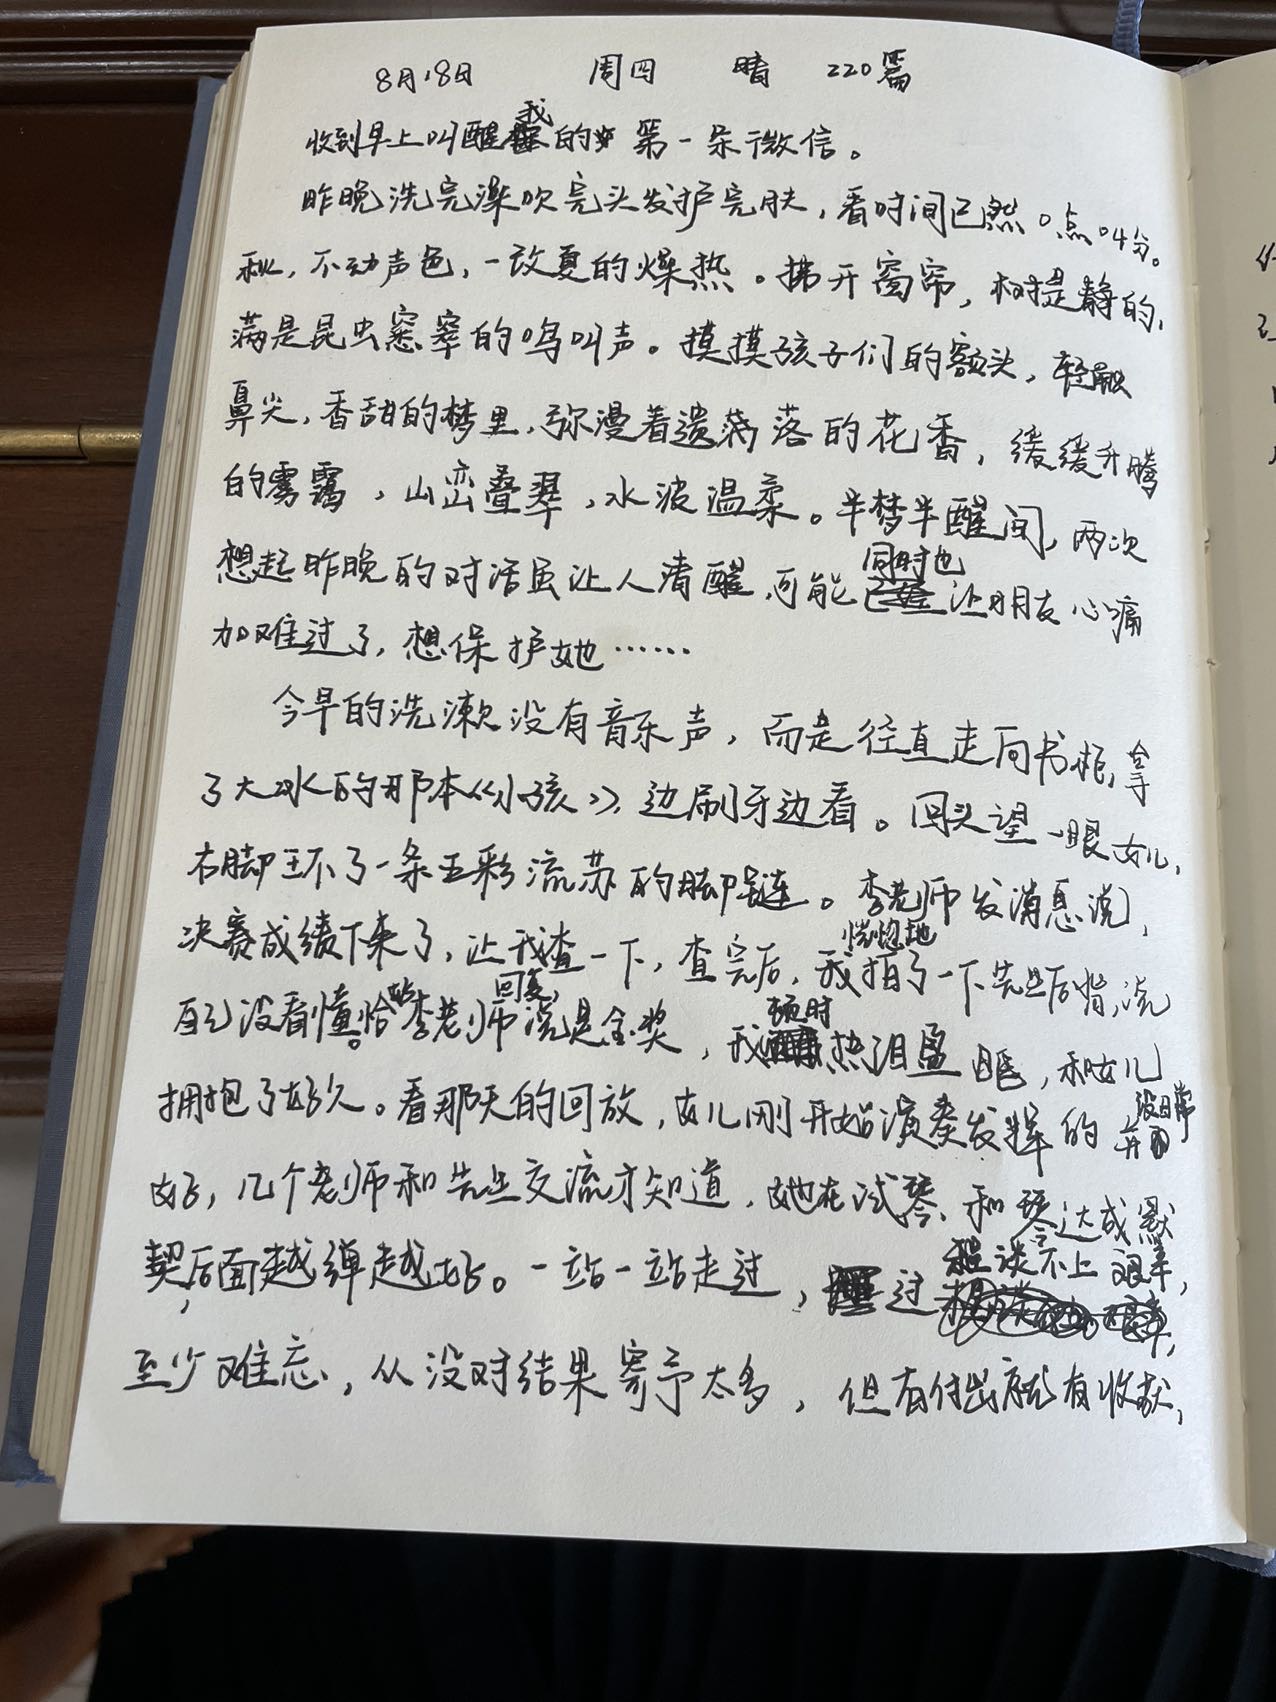 8月18日 周四 晴 220篇
收到早上叫醒我的第一条微信。
昨晚洗完澡吹完头发护完肤，看时间已然0点04分。
秋，不动声色，一改夏的燥热。拂开窗帘，树是静的，
满是昆虫窸窣的鸣叫声。摸摸孩子们的额头，轻触
鼻尖，香甜的梦里，弥漫着遗落的花香，缓缓升腾
的雾霭，山峦叠翠，水波温柔。半梦半醒间，两次
想起昨晚的对话虽让人清醒，可能同时也让朋友心痛
加难过了，想保护她……
今早的洗漱没有音乐声，而是径直走向书柜，拿
了大冰的那本《小孩》，边刷牙边看。回头望一眼女儿，
右脚环了一条五彩流苏的脚链。李老师发消息说，
决赛成绩下来了，让我查一下，查完后，我恍惚地拍了一下先生后背，说
自己没看懂。恰好李老师回复说是金奖，我顿时热泪盈眶，和女儿
拥抱了好久。看那天的回放，女儿刚开始演奏发挥的没日常
好，几个老师和先生交流才知道，她在试琴、和琴达成默
契，后面越弹越好。一站一站走过，过程谈不上艰辛，
至少难忘，从没对结果寄予太多，但有付出就有收获，